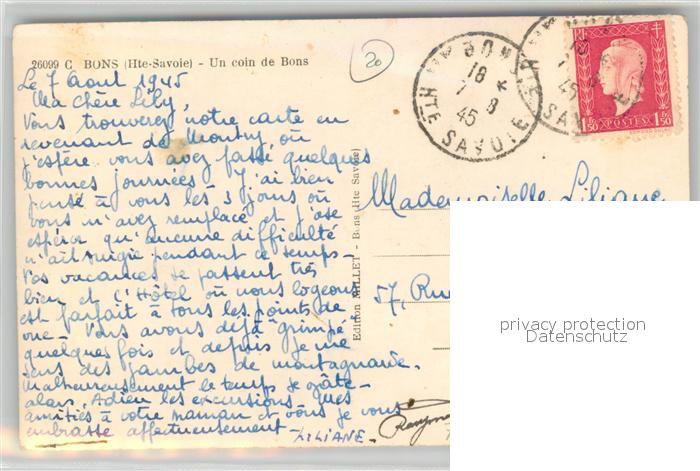 26099 C BONS (Hte-Savoie) - Un coin de Bons
20
Le 7 Aout 1945
Ma chère Lily,
Vous trouverez notre carte en
revenant de , où
j'espère vous avez passé quelques
bonnes journées - J'ai bien
pensé à vous les 3 jours où
vous m'avez remplacé et j'ose
espérer qu'aucune difficulté
n'ait surgie pendant ce temps-
Vos vacances se passent très
bien et l'Hôtel où nous logeons
est parfait à tous les points de
vue - Nous avons déjà grimpé
quelques fois et depuis je me
sens des jambes de montagnarde.
Malheureusement le temps se gâte -
alors, Adieu les excursions. Mes
amitiés à votre maman et vous je vous
embrasse affectueusement -
LILIANE -
Edition MILLET - Bons (Hte Savoie)
Mademoiselle Liliane
57, Rue
BONS
18 *
7 - 8
45
HTE SAVOIE
RF
POSTES
1F50 1F50
privacy protection
Datenschutz